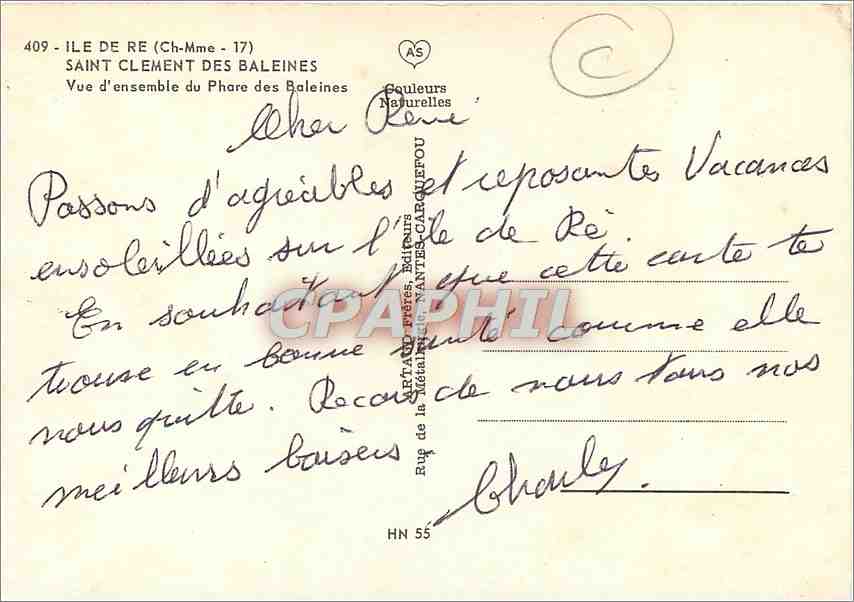 409 - ILE DE RE (Ch-Mme - 17)
SAINT CLEMENT DES BALEINES
Vue d'ensemble du Phare des Baleines
AS
Couleurs
Naturelles
C
Cher René
Passons d'agréables et reposantes Vacances
ensoleillées sur l'île de Ré
En souhaitant que cette carte te
trouve en bonne santé comme elle
nous quitte. Recois de nous tous nos
meilleurs baisers
Charley.
ARTAUD Frères, Editeurs
Rue de la Métallurgie, NANTES-CARQUEFOU
CPAPHIL
HN 55